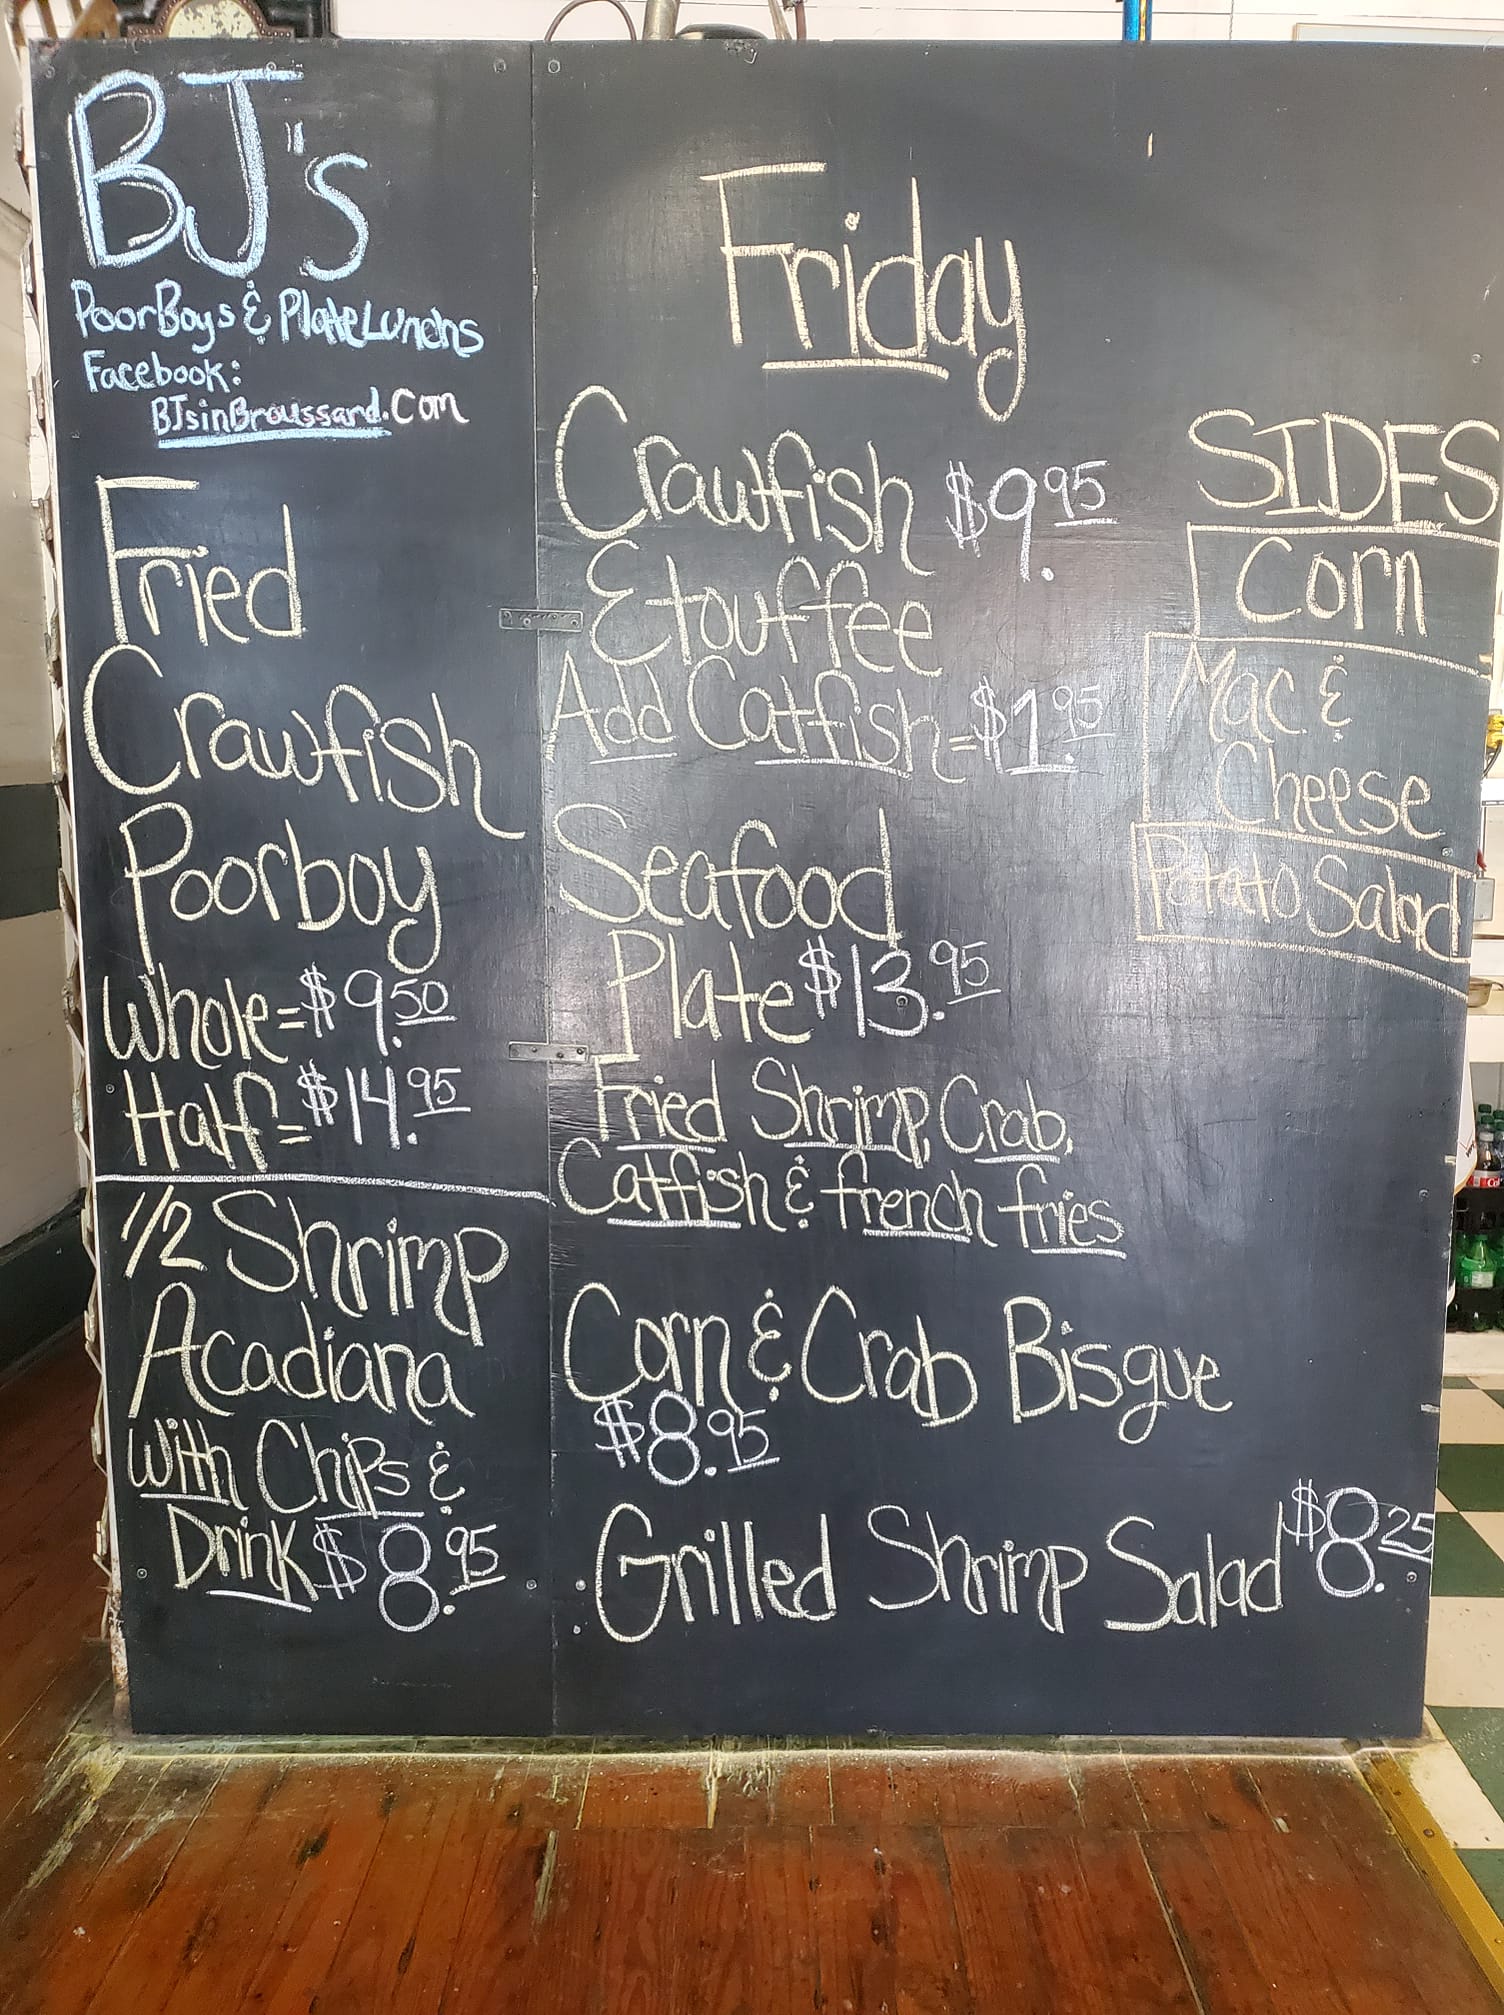 BJ's
PoorBoys & PlateLunchs
Facebook:
BJsinBroussard.com
Fried
Crawfish
Poorboy
Whole=$9.50
Half=$14.95
1/2 Shrimp
Acadiana
with Chips &
Drink $8.95
Friday
Crawfish $9.95
Etouffee
Add Catfish=$1.95
Seafood
Plate $13.95
Fried Shrimp, Crab,
Catfish & french fries
Corn & Crab Bisque
$8.95
Grilled Shrimp Salad $8.25
SIDES
Corn
Mac &
Cheese
Potato Salad